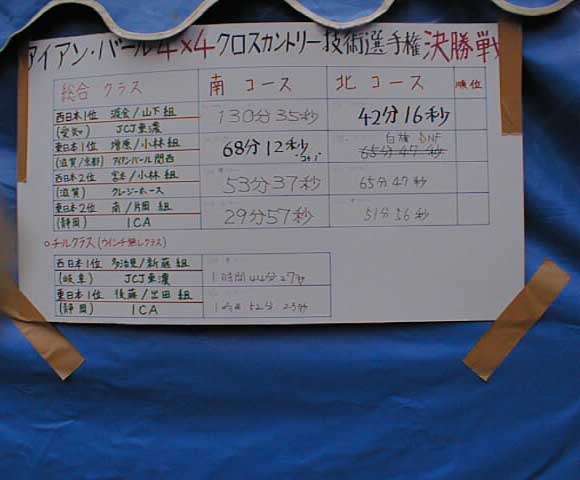 アイアン・バール4×4クロスカントリー技術選手権決勝戦
総合 クラス 南 コース 北 コース 順位
西日本1位 /山下組 130分35秒 42分16秒
(愛知) JCJ東濃
東日本1位 増原/小林組 68分12秒 白旗 DNF
(滋賀/京都) アイアンバール関西 65分47秒
西日本2位 宮本/小林組 53分37秒 65分47秒
(滋賀) クレージーホース
東日本2位 南/片岡 組 29分57秒 51分56秒
(静岡) ICA
○チルクラス(ウインチ無しクラス)
西日本1位 多治見/新藤組 1時間44分27秒
(岐阜) JCJ東濃
東日本1位 後藤/出田 組 52分
(静岡) ICA